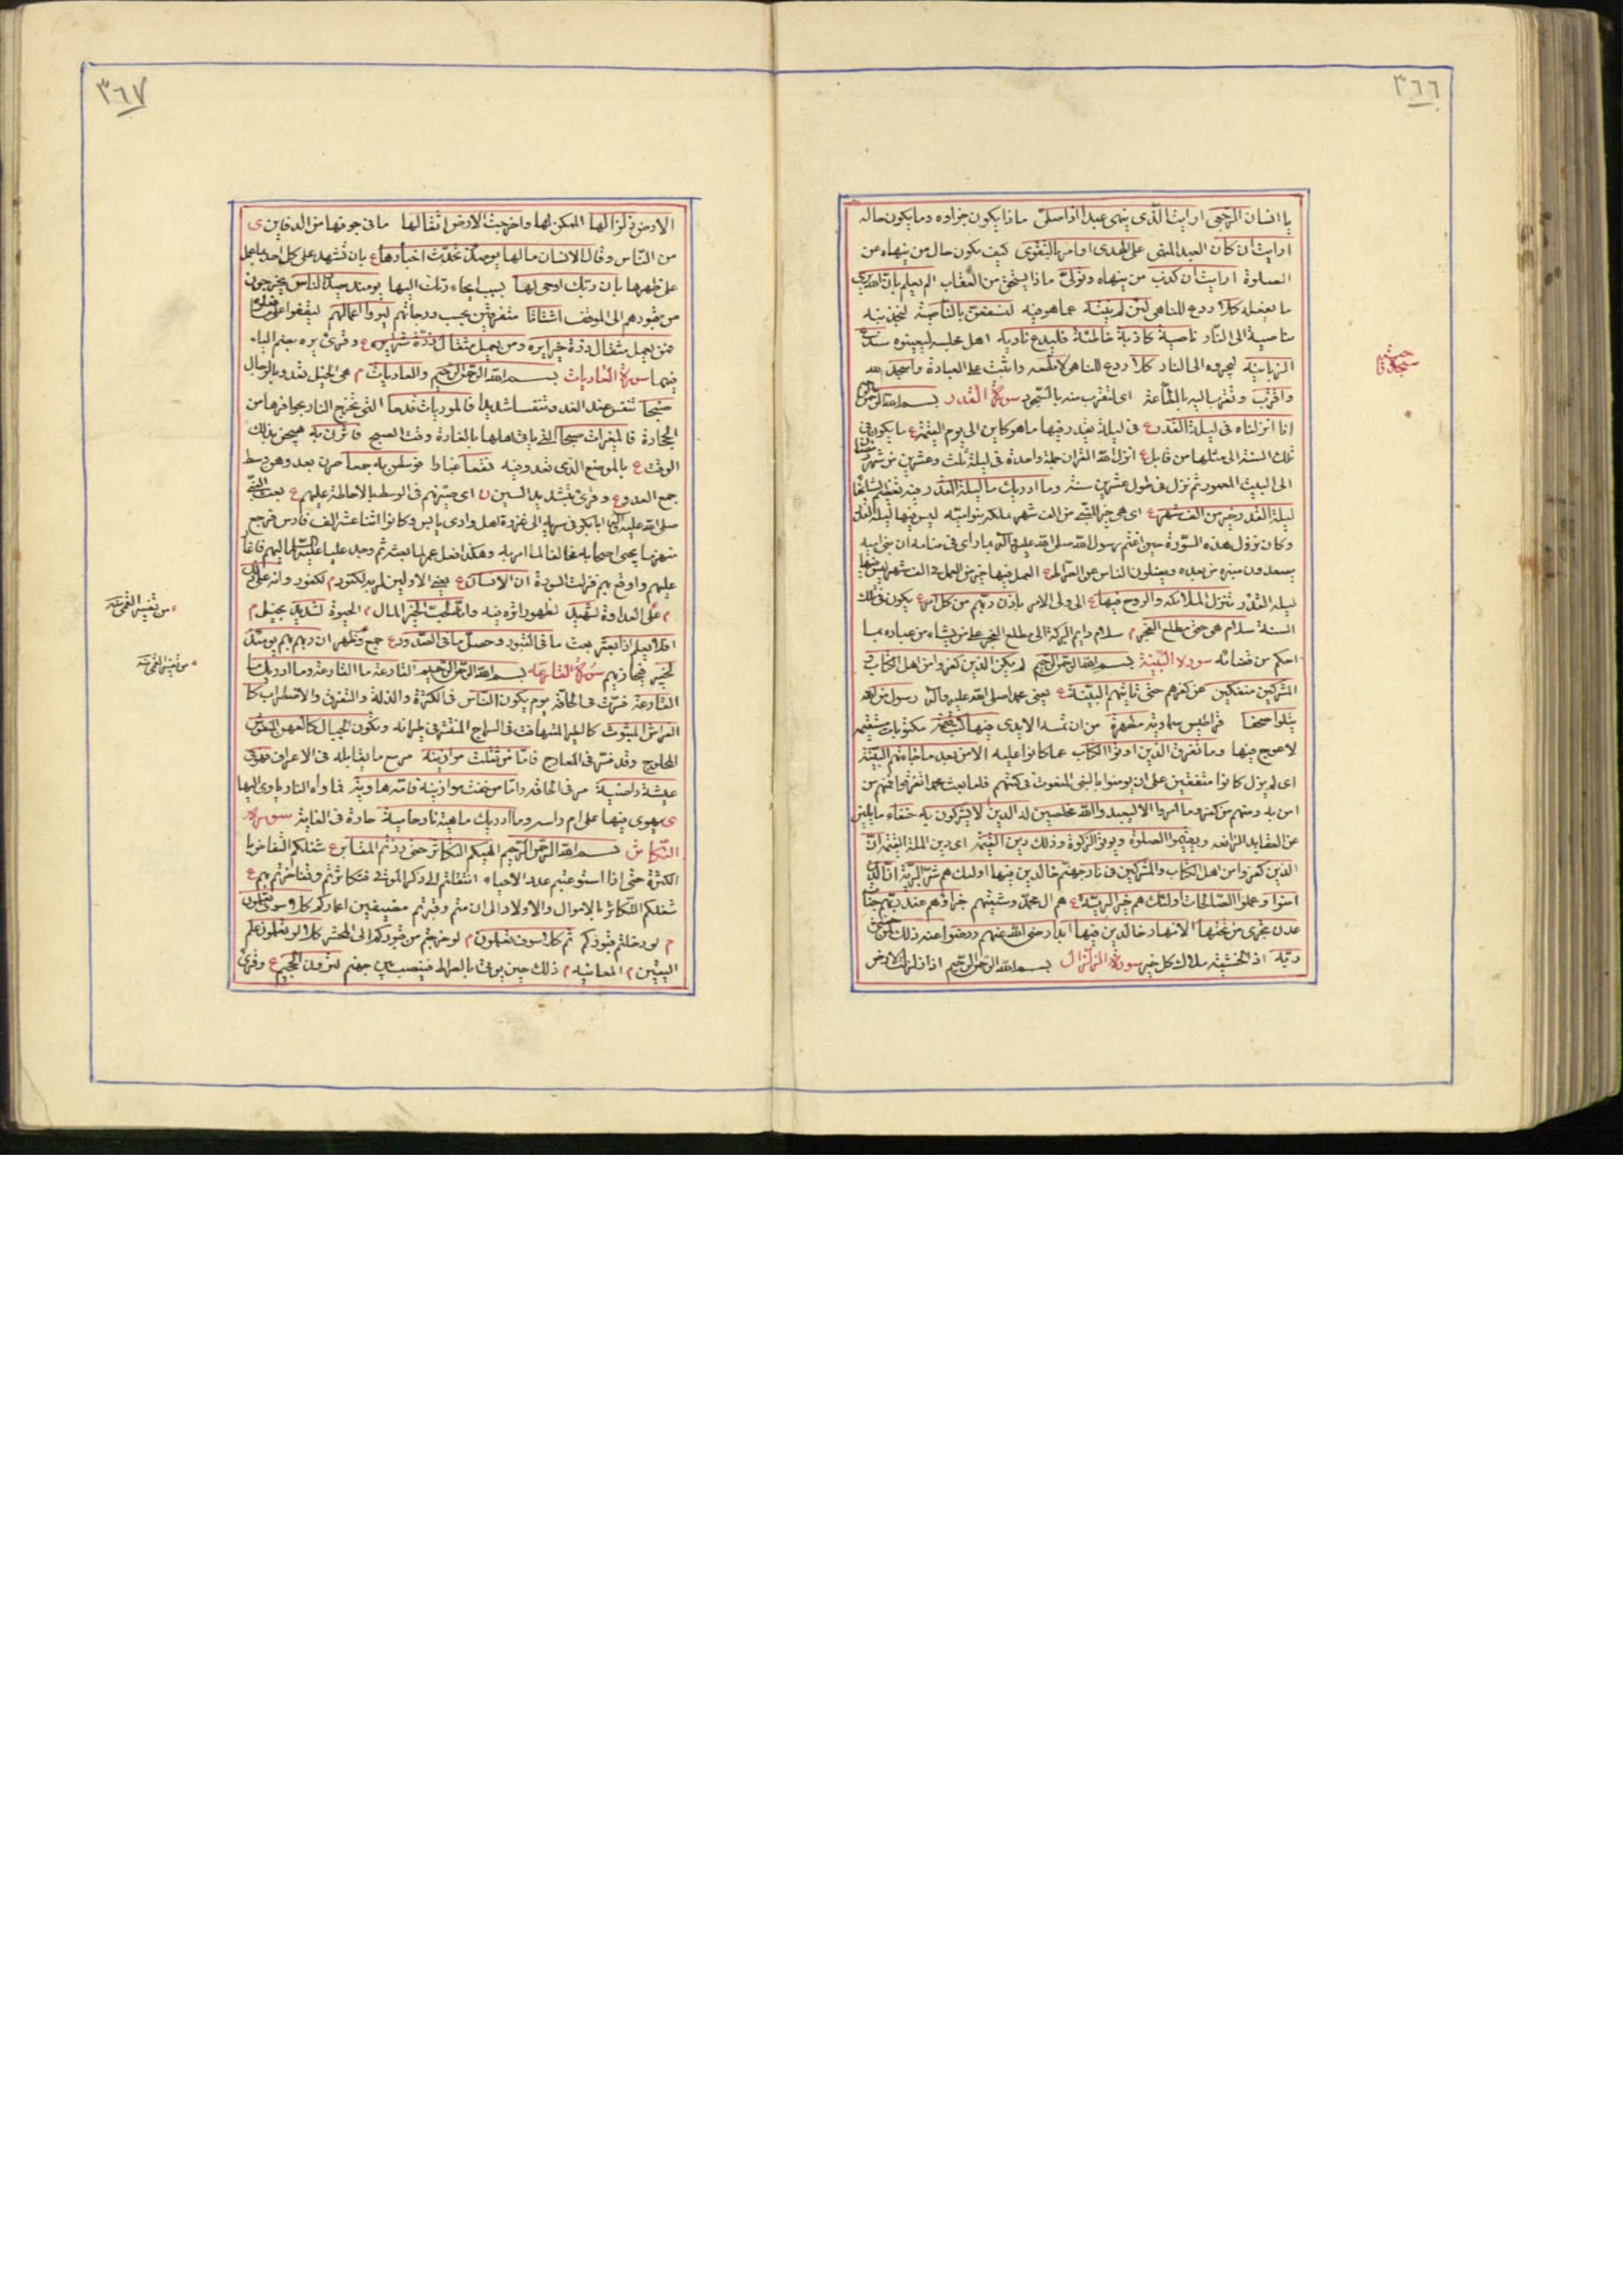 ٣٦٦
يا انسان الرجعى ارايت الذى ينهى عبدا اذا صلى ماذا يكون جزاؤه وما يكون حاله
ارايت ان كان العبد المنهى على الهدى او امر بالتقوى كيف يكون حال من ينهاه عن
الصلوة ارايت ان كذب من ينهاه وتولى ماذا يستحق من العقاب الم يعلم بان الله يرى
ما يفعله كلا ردع للناهى لئن لم ينته عما هو فيه لنسفعن بالناصية لنجذبنه
بناصية الى النار ناصية كاذبة خاطئة فليدع ناديه اهل مجلسه ليعينوه سندع
الزبانية ليجروه الى النار كلا ردع للناهى لا تطعه واثبت على العبادة واسجد لله
واقترب وتقرب اليه بالطاعة اى لتقرب منه بالسجود سورة القدر بسم الله الرحمن الرحيم
انا انزلناه فى ليلة القدر ع فى ليلة يقدر فيها ما هو كاين الى يوم القيمة ع ما يكون فى
تلك السنة الى مثلها من قابل ع انزل الله القران جملة واحدة فى ليلة ثلث وعشرين من شهر رمضان
الى البيت المعمور ثم نزل فى طول عشرين سنة وما ادريك ما ليلة القدر فيه تعظيم لشانها
ليلة القدر خير من الف شهر ع اى هى خير من الف شهر ملكه بنو اميه ليس فيها ليلة القدر
وكان نزول هذه السورة حين اغتم رسول الله صلى الله عليه وآله مما راى فى منامه ان بنى اميه
يصعدون منبره من بعده ويضلون الناس عن الصراط ع العمل فيها خير من العمل فى الف شهر ليس فيها
ليله القدر تنزل الملائكة والروح فيها ع الى ولى الامر باذن ربهم من كل امر ع يكون فى تلك
السنة سلام هى حتى مطلع الفجر م سلام دايم البركة الى مطلع الفجر على من يشاء من عباده بما
احكم من قضائه سورة البينة بسم الله الرحمن الرحيم لم يكن الذين كفروا من اهل الكتاب و
المشركين منفكين عن كفرهم حتى تاتيهم البينة ع يعنى محمدا صلى الله عليه وآله رسول من الله
يتلوا صحفا قراطيس سماوية مطهرة من ان تمسه الايدى فيها كتب قيمة مكتوبات مستقيمه
لا عوج فيها وما تفرق الذين اوتوا الكتاب عما كانوا عليه الا من بعد ما جاءتهم البينة
اى لم يزل كانوا متفقين على ان يومنوا بالنبى المنعوت فى كتبهم فلما بعث محمد تفرقوا فمنهم من
امن به ومنهم من كفر وما امروا الا ليعبدوا الله مخلصين له الدين لا يشركون به حنفاء مايلين
عن العقايد الزائغه ويقيموا الصلوة ويوتوا الزكوة وذلك دين القيمة اى دين الملة القيمة ان
الذين كفروا من اهل الكتاب والمشركين فى نار جهنم خالدين فيها اولئك هم شر البرية ان الذين
امنوا وعملوا الصالحات اولئك هم خير البرية ع هم ال محمد وشيعتهم جزاؤهم عند ربهم جنات
عدن تجرى من تحتها الانهار خالدين فيها ابدا رضى الله عنهم ورضوا عنه ذلك لمن خشى
ربه اذ الخشية ملاك كل خير سورة الزلزال بسم الله الرحمن الرحيم اذا زلزلت الارض
٣٦٧
الارض زلزالها الممكن لها واخرجت الارض اثقالها ما فى جوفها من الدفاين ى
من الناس وقال الانسان ما لها يومئذ تحدث اخبارها ع بان تشهد على كل احد بما عمل
على ظهرها بان ربك اوحى لها بسبب ايحاء ربك اليها يومئذ يصدر الناس يخرجون
من قبورهم الى الموقف اشتاتا متفرقين بحسب درجاتهم ليروا اعمالهم ليقفوا على ما فعلوه
فمن يعمل مثقال ذرة خيرا يره ومن يعمل مثقال ذرة شرا يره ع وقرئ يره بضم الياء
فيهما سورة العاديات بسم الله الرحمن الرحيم والعاديات م هى الخيل تعدو بالرجال
ضبحا تنفس عند العدو تنفسا شديدا فالموريات قدحا التى تخرج النار بحوافرها من
الحجارة فالمغيرات صبحا التى ياتى اهلها بالغارة وقت الصبح فاثرن به هيجن بذلك
الوقت ع بالموضع الذى تعدو فيه نقعا غبارا فوسطن به جمعا صرن بعدوهن وسط
جمع العدو ع وقرئ بتشديد السين ن اى صيرتهم فى الوسط بالاحاطة عليهم ع بعث النبى
صلى الله عليه وآله ابا بكر فى سرية الى غزوة اهل وادى يابس وكانوا اثنا عشر الف فارس فرجع
منهزما يجبن اصحابه مخالفا لما امر به وهكذا فعل عمر لما بعثه ثم وجه عليا عليه السلام اليهم فاغار
عليهم واوقع بهم فنزلت السورة ان الانسان ع يعنى الاولين لربه لكنود م لكفور وانه على ذلك
م على العداوة لشهيد لظهور اثره فيه وانه لحب الخير المال م الحيوة لشديد بخيل م
افلا يعلم اذا بعثر بعث ما فى القبور وحصل ما فى الصدور ع جمع وظهر ان ربهم بهم يومئذ
لخبير فيجازيهم سورة القارعه بسم الله الرحمن الرحيم القارعة ما القارعة وما ادريك ما
القارعة فسرت فى الحاقة يوم يكون الناس فى الكثرة والذلة والتفرق والاضطراب كا
الفراش المبثوث كالطير المتهافت فى السراج المتفرق فى طيرانه وتكون الجبال كالعهن المنفوش
المحلوج وقد فسر فى المعارج فاما من ثقلت موازينه مر مع ما يقابله فى الاعراف فهو فى
عيشة راضية مر فى الحاقه واما من خفت موازينه فامه هاوية فماواه النار ياوى اليها
ى يهوى فيها على ام راسه وما ادريك ماهيه نار حامية حارة فى الغاية سورة
التكاثر بسم الله الرحمن الرحيم الهيكم التكاثر حتى زرتم المقابر ع شغلكم التفاخر با
الكثرة حتى اذا استوعبتم عدد الاحياء انتقلتم الى ذكر الموتى فتكاثرتم وتفاخرتم بهم ع
شغلكم التكاثر بالاموال والاولاد الى ان متم وقبرتم مضيعين اعماركم كلا سوف تعلمون
م لو دخلتم قبوركم ثم كلا سوف تعلمون م لو خرجتم من قبوركم الى المحشر كلا لو تعلمون علم
اليقين م المعاينه م ذلك حين يوتى بالصراط فينصب بين جهنم لترون الجحيم ع وقرئ